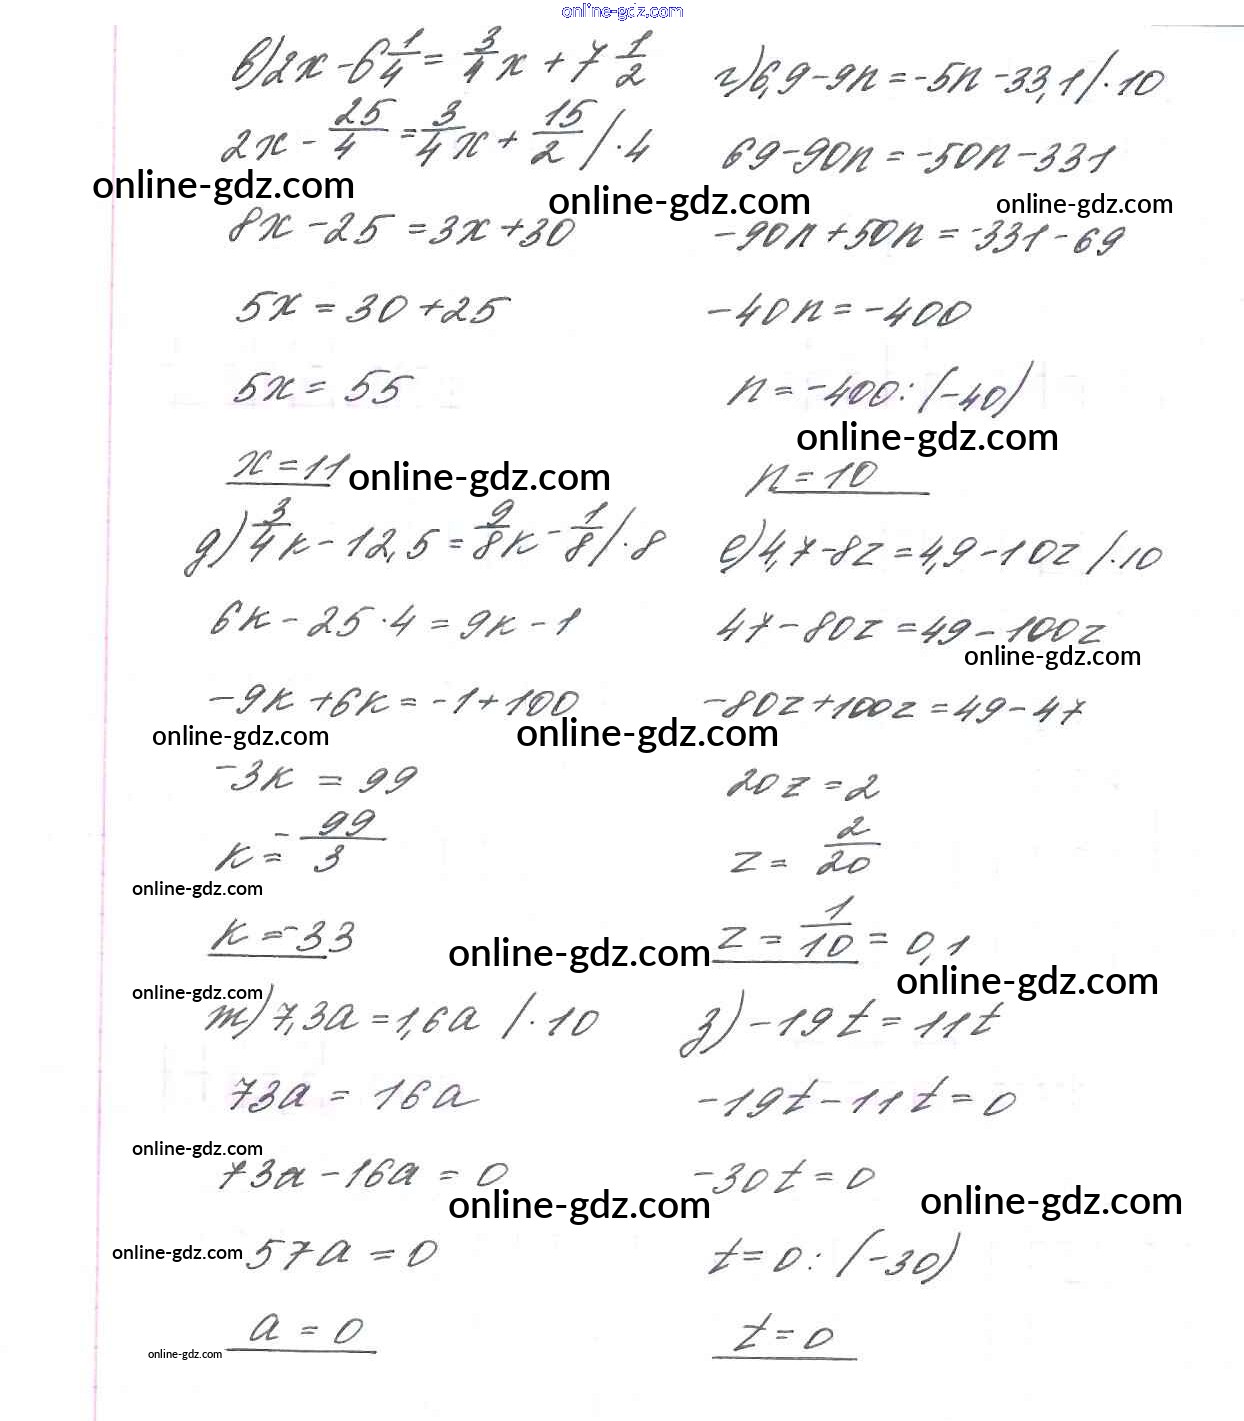 online-gdz.com
в) 2x - 6 1/4 = 3/4 x + 7 1/2
2x - 25/4 = 3/4 x + 15/2 / · 4
online-gdz.com
online-gdz.com
8x - 25 = 3x + 30
5x = 30 + 25
5x = 55
x = 11
online-gdz.com
г) 6,9 - 9n = -5n - 33,1 / · 10
69 - 90n = -50n - 331
online-gdz.com
-90n + 50n = -331 - 69
-40n = -400
n = -400 : (-40)
online-gdz.com
n = 10
д) 3/4 к - 12,5 = 9/8 к - 1/8 / · 8
6к - 25 · 4 = 9к - 1
-9к + 6к = -1 + 100
online-gdz.com
online-gdz.com
-3к = 99
к = - 99/3
online-gdz.com
к = -33
online-gdz.com
е) 4,7 - 8z = 4,9 - 10z / · 10
47 - 80z = 49 - 100z
online-gdz.com
-80z + 100z = 49 - 47
20z = 2
z = 2/20
z = 1/10 = 0,1
online-gdz.com
online-gdz.com
ж) 7,3a = 1,6a / · 10
73a = 16a
online-gdz.com
73a - 16a = 0
online-gdz.com
online-gdz.com
57a = 0
a = 0
online-gdz.com
з) -19t = 11t
-19t - 11t = 0
-30t = 0
online-gdz.com
t = 0 : (-30)
t = 0